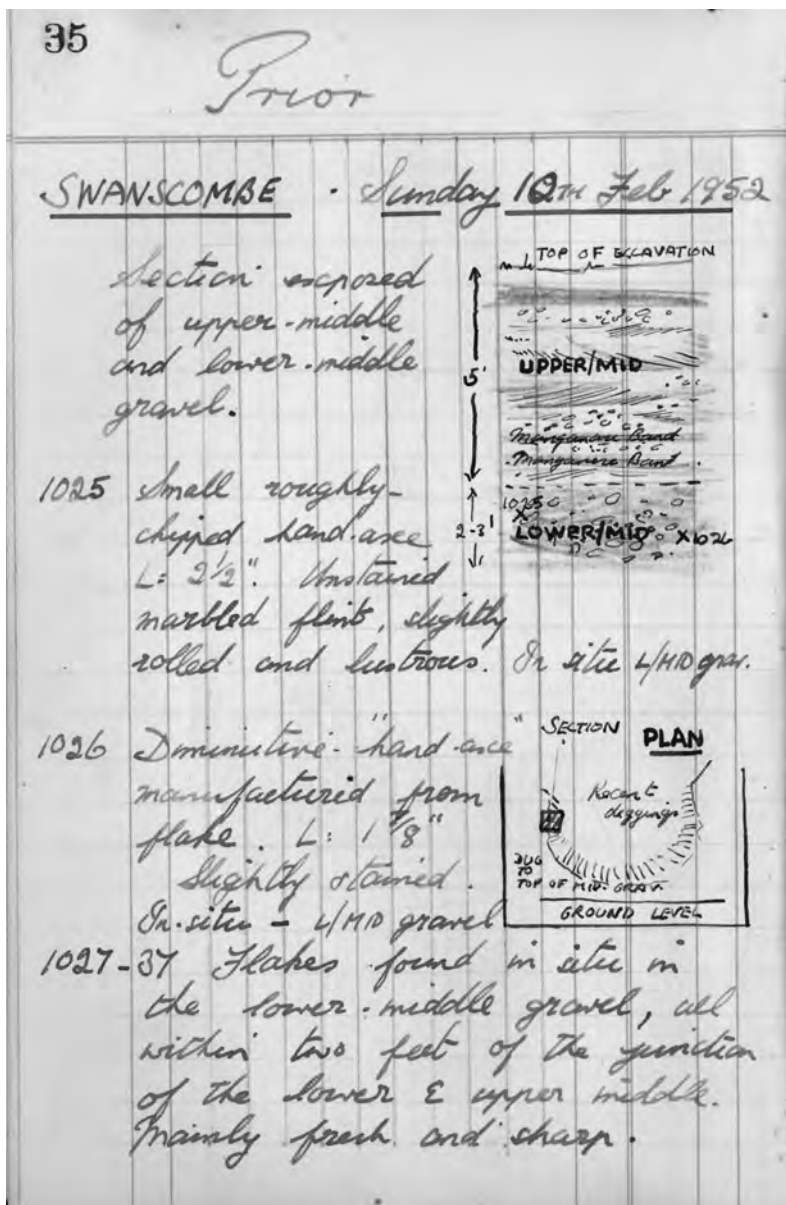 35
Prior
SWANSCOMBE · Sunday 10TH Feb 1952
TOP OF EXCAVATION
Section exposed
of upper-middle
and lower-middle
gravel.
5'
UPPER/MID
Manganese Band
Manganese Band
2-3'
1025
X
LOWER/MID X1026
1025 Small roughly-
chipped hand-axe
L: 2 1/2". Unstained
marbled flint, slightly
rolled and lustrous. In situ L/MID grav.
1026 Diminutive "hand-axe"
manufactured from
flake. L: 1 7/8"
Slightly stained.
In-situ - L/MID gravel
SECTION PLAN
Recent
diggings
DUG
TO
TOP OF MID-GRAV.
GROUND LEVEL
1027-37 Flakes found in situ in
the lower-middle gravel, all
within two feet of the junction
of the lower & upper middle.
Mainly fresh and sharp.